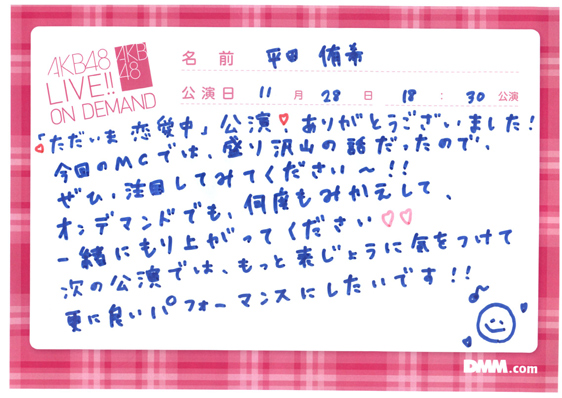 AKB48
LIVE!!
ON DEMAND
AKB
48
名前 平田 侑希
公演日 11月 28日 18:30公演
「ただいま 恋愛中」公演、ありがとうございました!
今回のMCでは、盛り沢山の話だったので、
ぜひ、注目してみてください〜!!
オンデマンドでも、何度もみかえして、
一緒にもり上がってください♡♡
次の公演では、もっと表じょうに気をつけて
更に良いパフォーマンスにしたいです!!
DMM.com